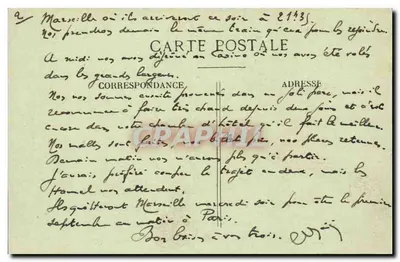 2/ Marseille où ils arriveront ce soir à 21h35
Nos prendrons demain le même train qu'eux pour les rejoindre.
CARTE POSTALE
A midi nos avons déjeuné au Casino où nos avons été volés
dans les grands largeurs.
CORRESPONDANCE
ADRESSE
Nos nos sommes ensuite promenés dans un joli parc, mais il
recommence à faire très chaud depuis deux jours et c'est
encore dans nos chambres d'hôtel qu'il fait le meilleur.
Nos malles sont faites, nos billets pris, nos places retenues.
Demain matin nos n'aurons plus qu'à partir.
J'aurais préféré couper le trajet en deux, mais les
Hamel nos attendent.
Ils quitteront Marseille mercredi soir pour être le premier
septembre au matin à Paris.
Bons baisers à vos trois.